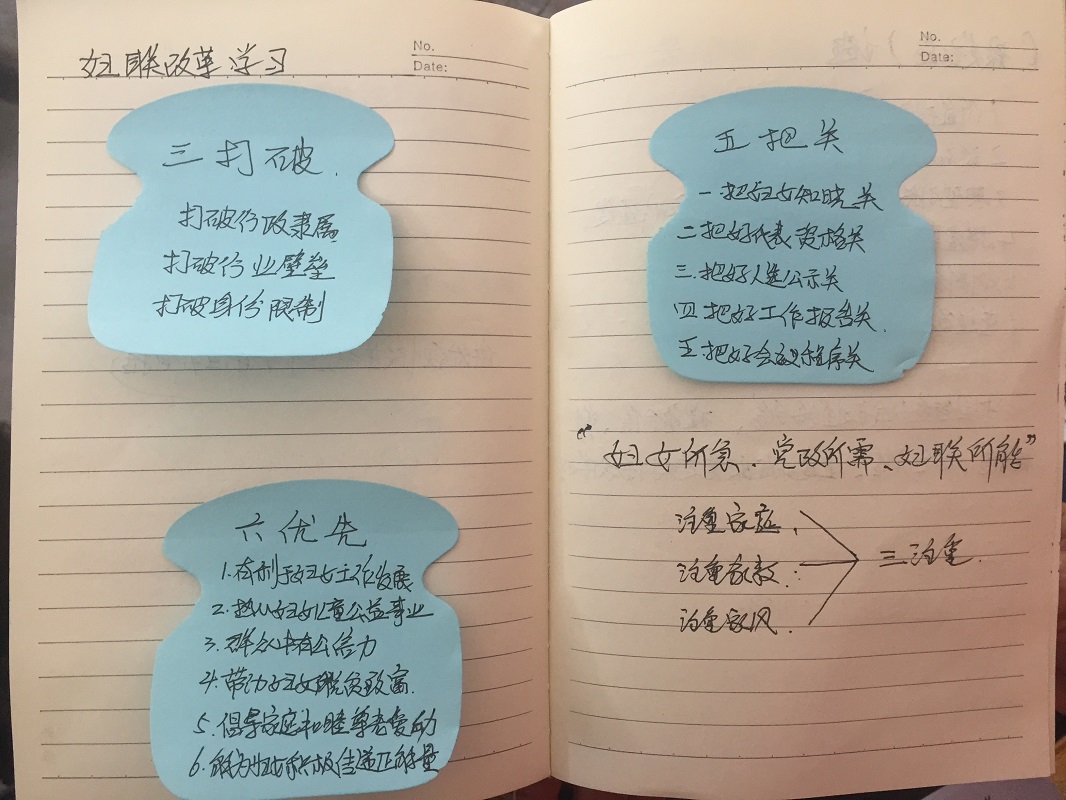 妇联改革学习
No.
Date:
三打破.
打破行政隶属
打破行业壁垒
打破身份限制
六优先
1.有利于妇女工作发展
2.热心妇女儿童公益事业
3.群众中有公信力
4.带动妇女脱贫致富.
5.倡导家庭和睦尊老爱幼
6.能为妇女积极传递正能量
No.
Date:
五把关
一把妇女知晓关
二把好代表资格关
三.把好人选公示关
四把好工作报告关.
五把好会议程序关
“妇女所急、党政所需、妇联所能”
注重家庭、
注重家教.
注重家风.
三注重.